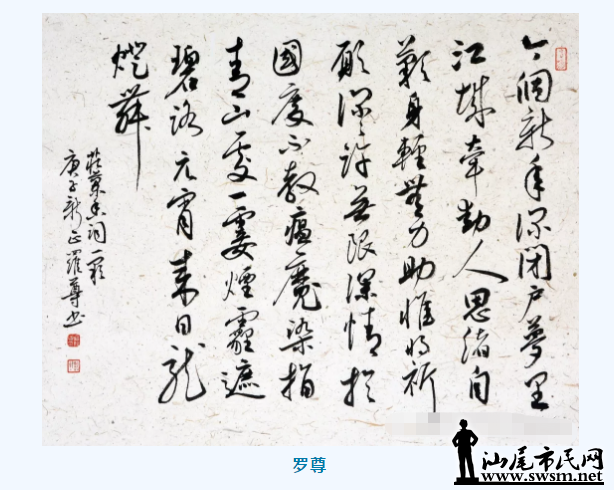 今個新年深閉戶夢里
江城牽動人思緒自
歎身輕無力助惟將祈
願深深許無限深情於
國度不教瘟魔染指
青山處一霎煙霾遮
碧路元宵來日龍
燈舞
詞一
庚子新正羅尊書
罗尊
汕尾市民网
www.swsm.net